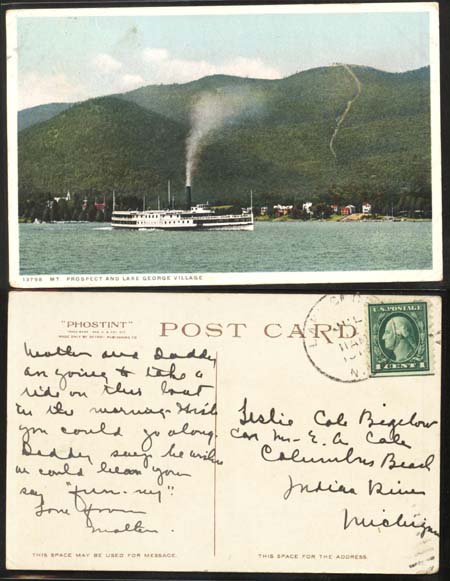 13798 MT. PROSPECT AND LAKE GEORGE VILLAGE
"PHOSTINT"
POST CARD
U.S. POSTAGE
1 CENT 1
Mother and Daddy
are going to take a
ride on this boat
in the morning. Wish
you could go along.
Daddy says he wishes
we could hear you
say "fun-ny".
Love from
Mother.
Leslie Cole Bigelow
Care Mr. E. A. Cole
Columbus Beach
Indian River
Michigan
THIS SPACE MAY BE USED FOR MESSAGE.
THIS SPACE IS FOR THE ADDRESS.